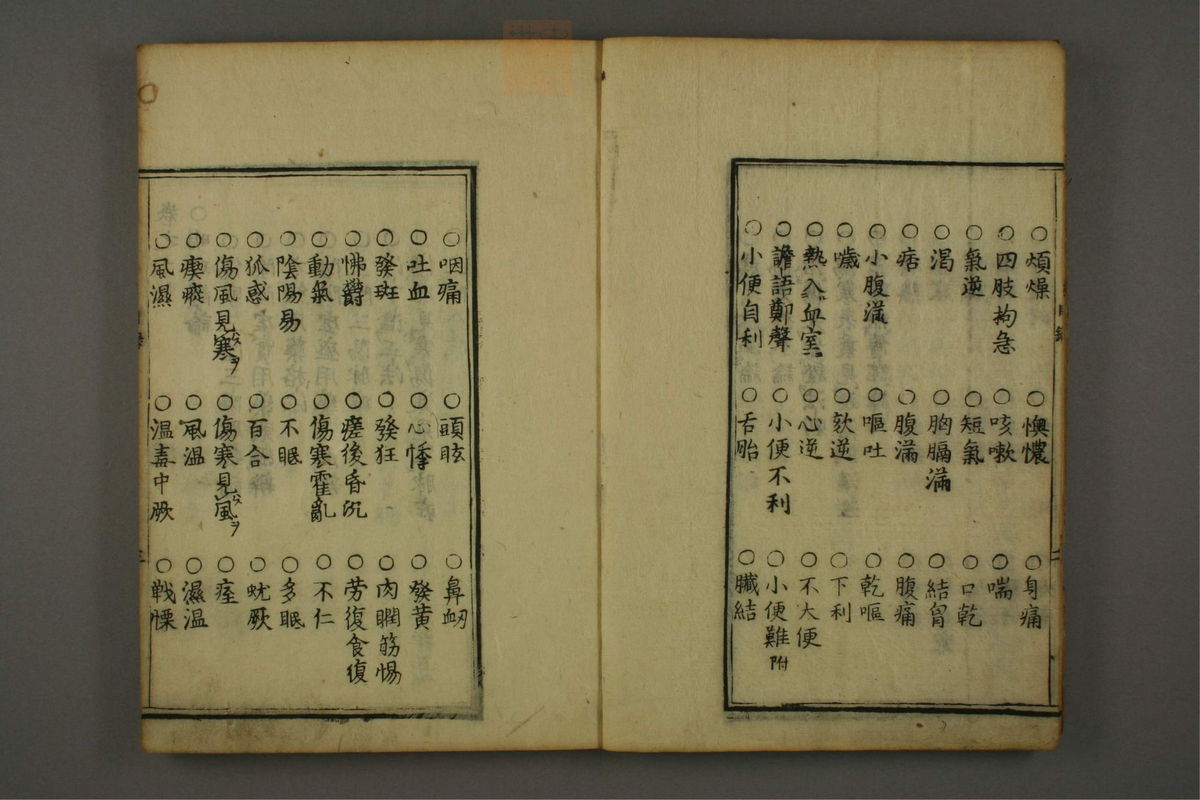 ○煩燥 ○懊憹 ○身痛
○四肢拘急 ○咳嗽 ○喘
○氣逆 ○短氣 ○口乾
○渴 ○胸膈滿 ○結胷
○痞 ○腹滿 ○腹痛
○小腹滿 ○嘔吐 ○乾嘔
○噦 ○欬逆 ○下利
○熱入血室 ○心逆 ○不大便
○譫語鄭聲 ○小便不利 ○小便難附
○小便自利 ○舌胎 ○臟結
目錄
二
○咽痛 ○頭眩 ○鼻衂
○吐血 ○心悸 ○發黄
○發斑 ○發狂 ○肉瞤筋惕
○怫欝 ○瘥後昏沉 ○劳復食復
○動氣 ○傷寒霍亂 ○不仁
○陰陽易 ○不眠 ○多眠
○狐惑 ○百合 ○蚘厥
○傷風見寒ヲ ○傷寒見風ヲ ○痓
○瘈瘲 ○風温 ○濕温
○風濕 ○温毒中厥 ○戰慄